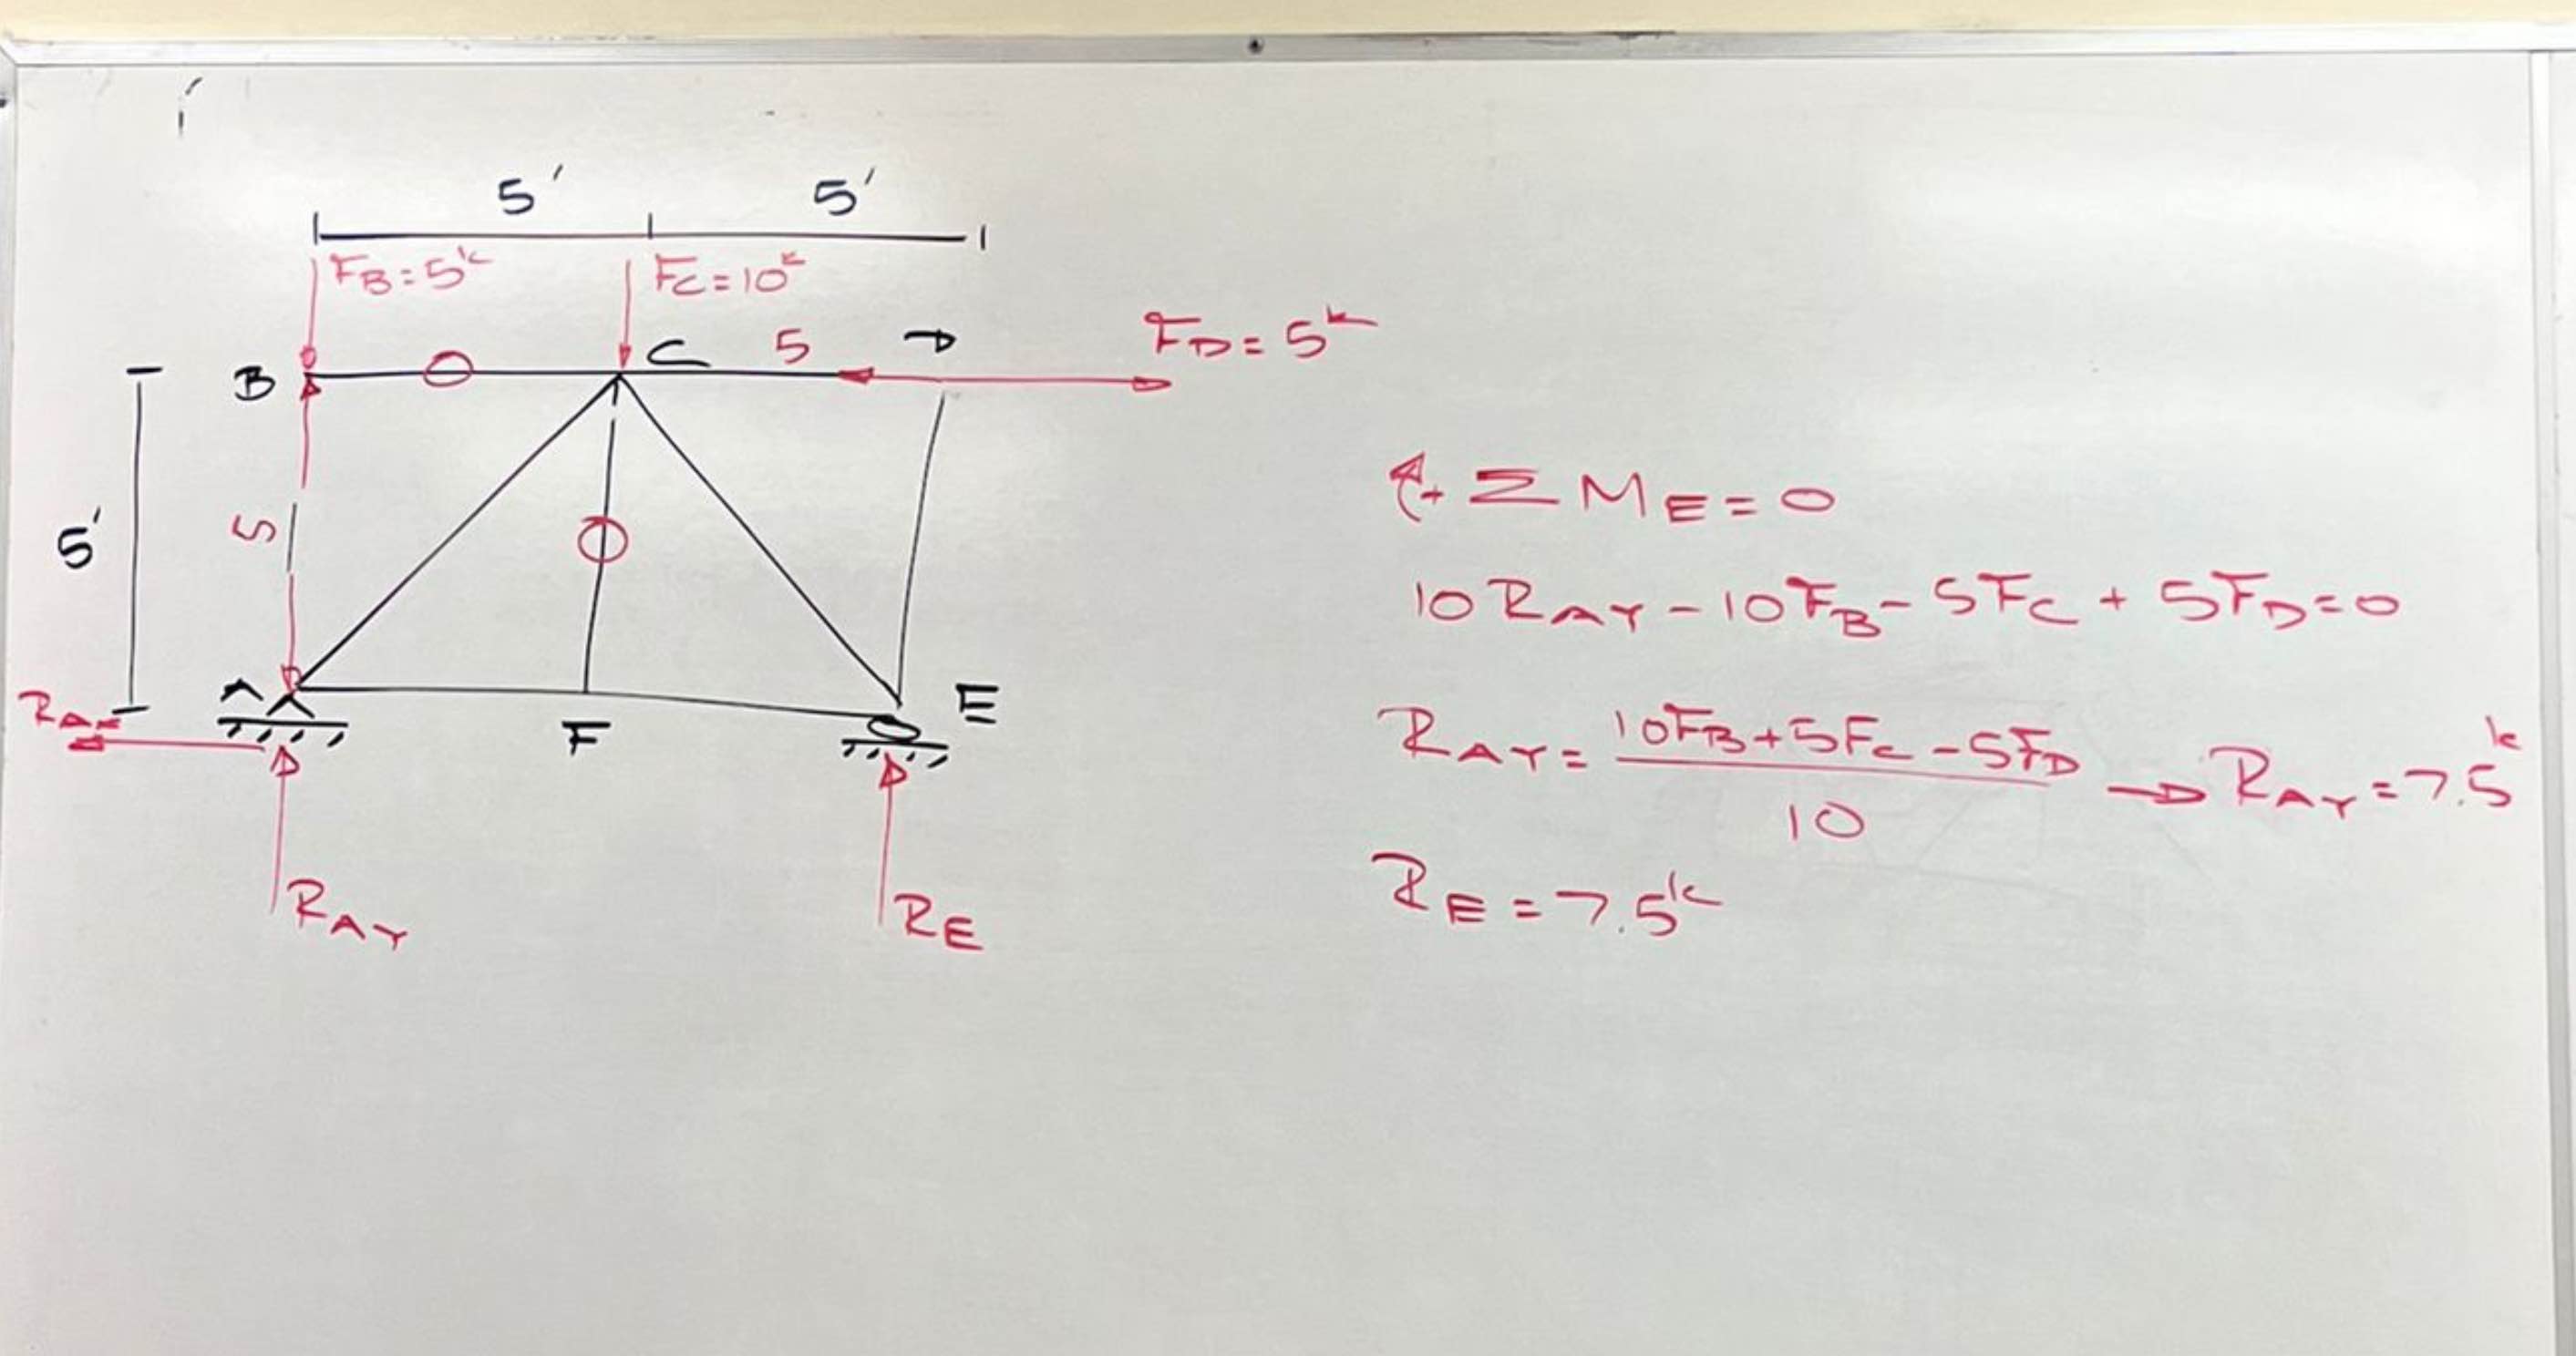 5' 5'
F_B = 5^k F_C = 10^k
F_D = 5^k
B O C 5 D
5' 5 O
A F E
R_AX
R_AY R_E
+ Σ M_E = 0
10 R_AY - 10 F_B - 5 F_C + 5 F_D = 0
R_AY = (10F_B + 5F_C - 5F_D) / 10 → R_AY = 7.5^k
R_E = 7.5^k